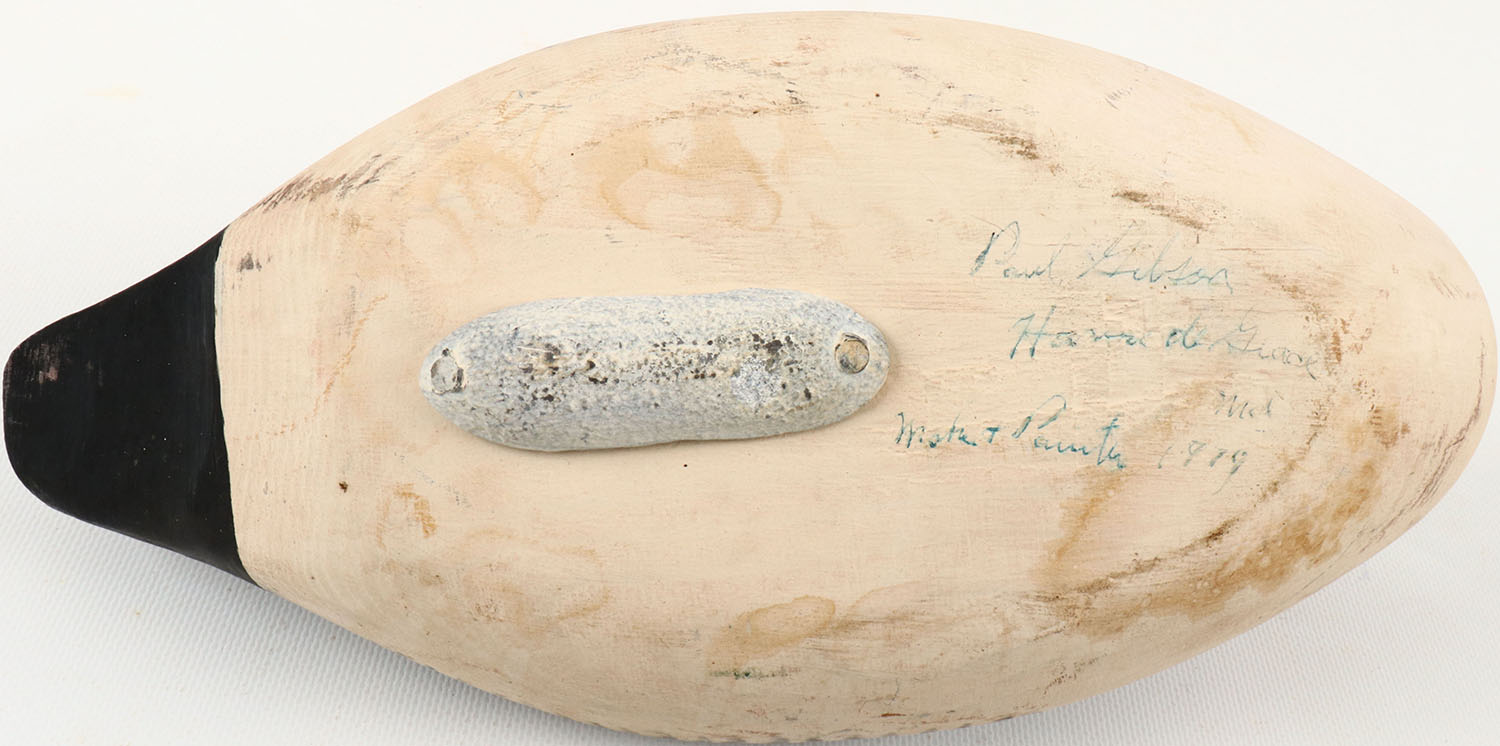 Paul Gibson
Havre de Grace
Md
Maker + Painter 1979